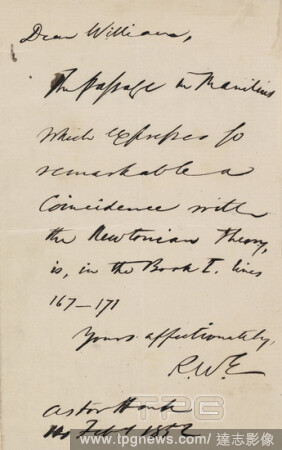 Dear William,
The passage in Manilius
which expresses so
remarkable a
Coincidence with
the Newtonian Theory,
is, in the Book I. lines
167—171
Yours affectionately,
R.W.E
Astor House
Feb 1852
TPG
www.tpgnews.com | 達志影像